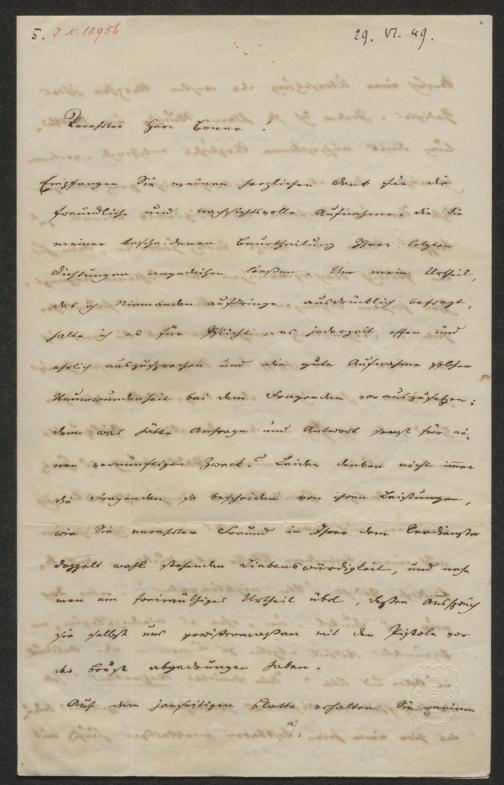 5. J. N. 10956
29. VI. 49.
Verehrter Herr !
Empfangen Sie meinen herzlichen Dank für die
freundliche und nachsichtsvolle Aufnahme, die Sie
meiner bescheidenen Beurtheilung Ihrer letzten
Dichtungen angedeihen ließen. Um mein Urtheil,
das ich Niemanden aufdringe, ausdrücklich befragt,
halte ich es für Pflicht, es jederzeit offen und
ehrlich auszusprechen und die gute Aufnahme solcher
Unumwundenheit bei dem Fragenden vorauszusetzen;
denn was hätte Anfrage und Antwort sonst für ei-
nen vernünftigen Zweck? Leider denken nicht immer
die Fragenden so bescheiden von ihren Leistungen,
wie Sie verehrter Freund in Ihrer dem Verdienste
doppelt wohl stehenden Liebenswürdigkeit, und neh-
men ein freimüthiges Urtheil übel, dessen Ausspruch
sie selbst uns gewissermaßen mit der Pistole vor
der Brust abgedrungen haben.
Auf dem jenseitigen Blatte erhalten Sie meinen